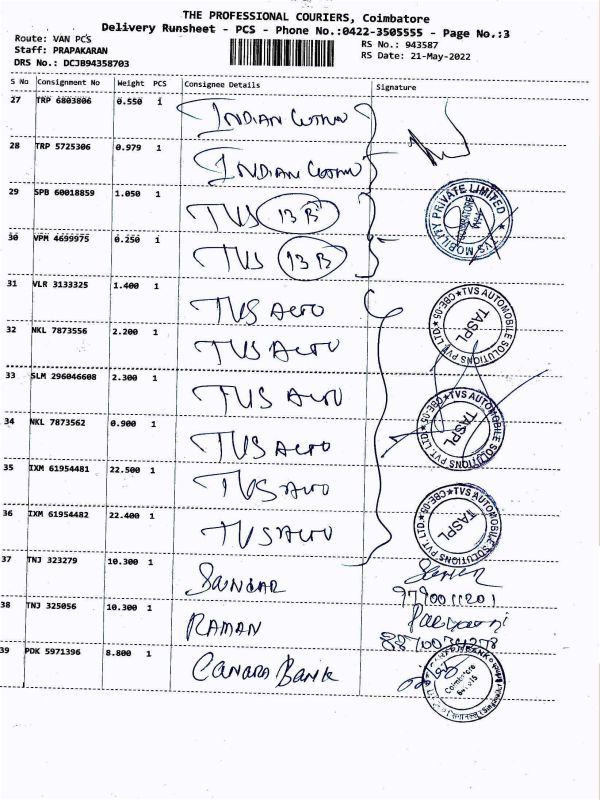 THE PROFESSIONAL COURIERS, Coimbatore
Delivery Runsheet - PCS - Phone No.:0422-3505555 - Page No.:3
Route: VAN PCS
RS No.: 943587
Staff: PRAPAKARAN
RS Date: 21-May-2022
DRS No.: DCJB94358703
S No Consignment No Weight PCS Consignee Details Signature
27 TRP 6803806 0.550 1 INDIAN
28 TRP 5725306 0.979 1 INDIAN
29 SPB 60018859 1.050 1 TVS 13 B
TVS MOBILITY PRIVATE LIMITED
30 VPM 4699975 0.250 1 TVS 13 B
31 VLR 3133325 1.400 1 TVS AUTO
TVS AUTOMOBILE SOLUTIONS PVT LTD. CBE-05 TASPL
32 NKL 7873556 2.200 1 TVS AUTO
33 SLM 296046608 2.300 1 TVS AUTO
34 NKL 7873562 0.900 1 TVS AUTO
TVS AUTOMOBILE SOLUTIONS PVT LTD. CBE-05 TASPL
35 IXM 61954481 22.500 1 TVS AUTO
36 IXM 61954482 22.400 1 TVS AUTO
TVS AUTOMOBILE SOLUTIONS PVT LTD. CBE-05 TASPL
37 TNJ 323279 10.300 1 SUNDAR
9790011201
38 TNJ 325056 10.300 1 RAMAN
8870034278
39 PDK 5971396 8.800 1 CANARA BANK
Coimbatore